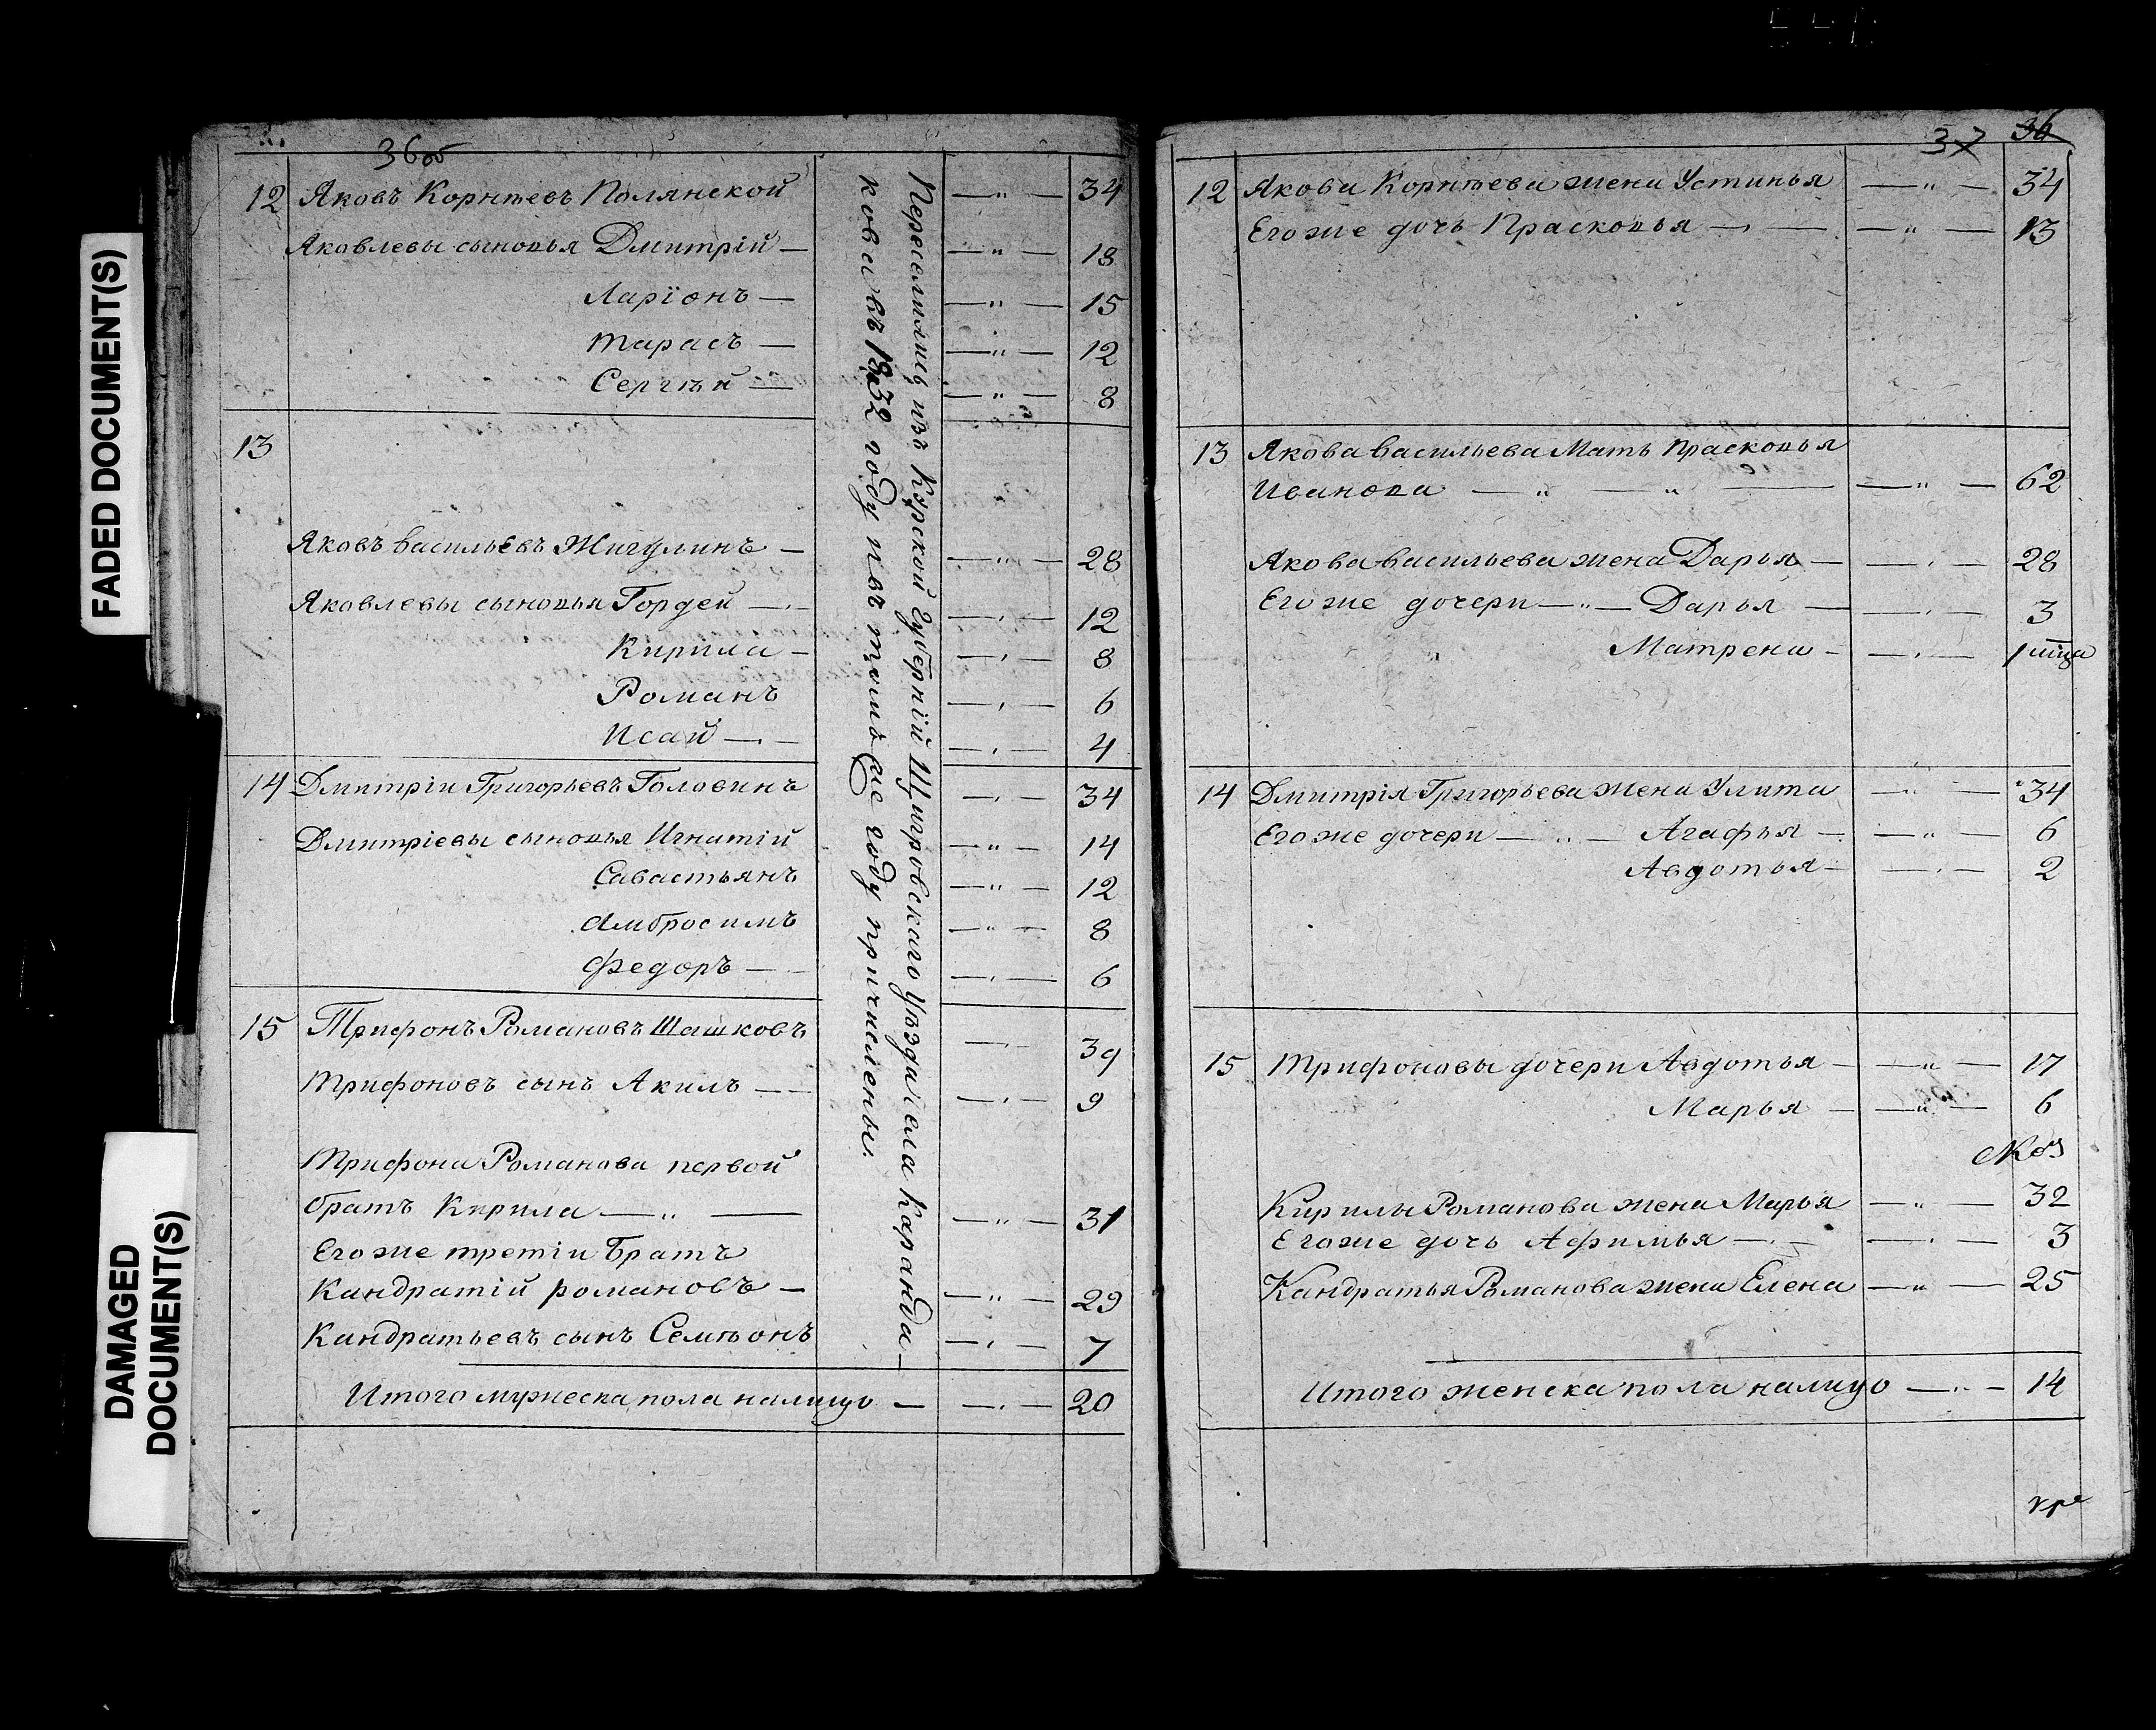 FADED DOCUMENT(S)
DAMAGED
DOCUMENT(S)
36об
12 Яковъ Корнѣевъ Полянской — " — 34
Яковлевы сыновья Дмитрій — — " — 18
Ларіонъ — — " — 15
Тарасъ — — " — 12
Сергѣй — — " — 8
13
Яковъ Васильевъ Жигулинъ — — " — 28
Яковлевы сыновья Гордей — — " — 12
Кирила — — " — 8
Романъ — " — 6
Исай — — " — 4
14 Дмитріи Григорьевъ Головинъ — " — 34
Дмитріевы сыновья Игнатій — " — 14
Савастьянъ — " — 12
Амбросимъ — " — 8
Федоръ — — " — 6
15 Трифонъ Романовъ Шашковъ — " — 39
Трифоновъ сынъ Акимъ — — " — 9
Трифона Романова первой
братъ Кирила — " — — " — 31
Его же третіи Братъ
Кандратій романовъ — — " — 29
Кандратьевъ сынъ Семѣонъ — " — 7
Итого мужеска пола налицо — — " — 20
Переселились изъ Курской Губерніи Щигровскаго Уѣзда села Каранда-
кова въ 1832 году и въ томъ же году причислены.
37 36
12 Якова Корнѣева жена Устинья — " — 34
Его же дочь Прасковья — — " — 13
13 Якова Васильева Мать Прасковья
Иванова — " — " — — " — 62
Якова Васильева жена Дарья — — " — 28
Его же дочери — " — Дарья — — " — 3
Матрена — — " — 1
14 Дмитрія Григорьева жена Улита — " — 34
Его же дочери — " — Агафья — — " — 6
Авдотья — — " — 2
15 Трифоновы дочери Авдотья — — " — 17
Марья — — " — 6
Кирилы Романова жена Марья — " — 32
Его же дочь Афимья — — " — 3
Кандратья Романова жена Елена — " — 25
Итого женска пола налицо — " — 14